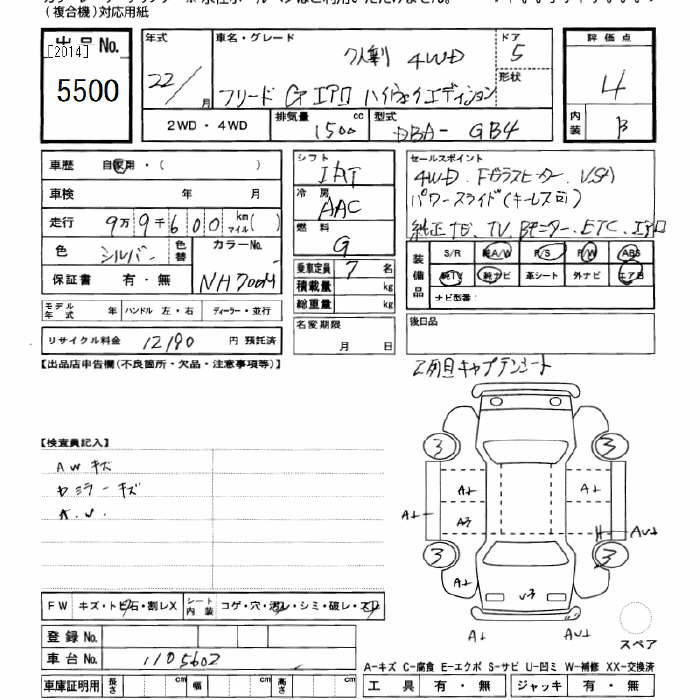 (複合機)対応用紙
出品No.
[2014]
5500
年式 22/ 月
車名・グレード 7人乗り 4WD
フリード G エアロ ハイウェイエディション
ドア 5
形状
評価点 4
内装 B
2WD・4WD
排気量 1500 cc
型式 DBA- GB4
車歴 自家用・( )
車検 年 月
走行 9万9千600 km マイル( )
色 シルバー 色替 カラーNo. NH700M
保証書 有・無
モデル年式 年 ハンドル 左・右 ディーラー・並行
リサイクル料金 12190 円 預託済
シフト IAT
冷房 AAC
燃料 G
乗車定員 7 名
積載量 kg
総重量 kg
名変期限 月 日
セールスポイント
4WD.
パワースライド(キーレス可)
純正ナビ、TV、Bモニター、ETC、エアロ
装備品 S/R 純A/W P/S P/W ABS
純TV 純ナビ 革シート 外ナビ エアB
ナビ型番:
後日品
【出品店申告欄(不良箇所・欠品・注意事項等)】
2列目キャプテンシート
【検査員記入】
AWキズ
ミラーキズ
A.U.
3 3
A1 A1
A1 A3 H Au1
3 3
A1 U3
A1 Au1
スペア
FW キズ・トビ石・割レX シート内装 コゲ・穴・汚レ・シミ・破レ・スレ
登録No.
車台No. 1105602
車庫証明用 長さ cm 幅 cm 高さ cm
A-キズ C-腐食 E-エクボ S-サビ U-凹ミ W-補修 XX-交換済
工具 有・無 ジャッキ 有・無